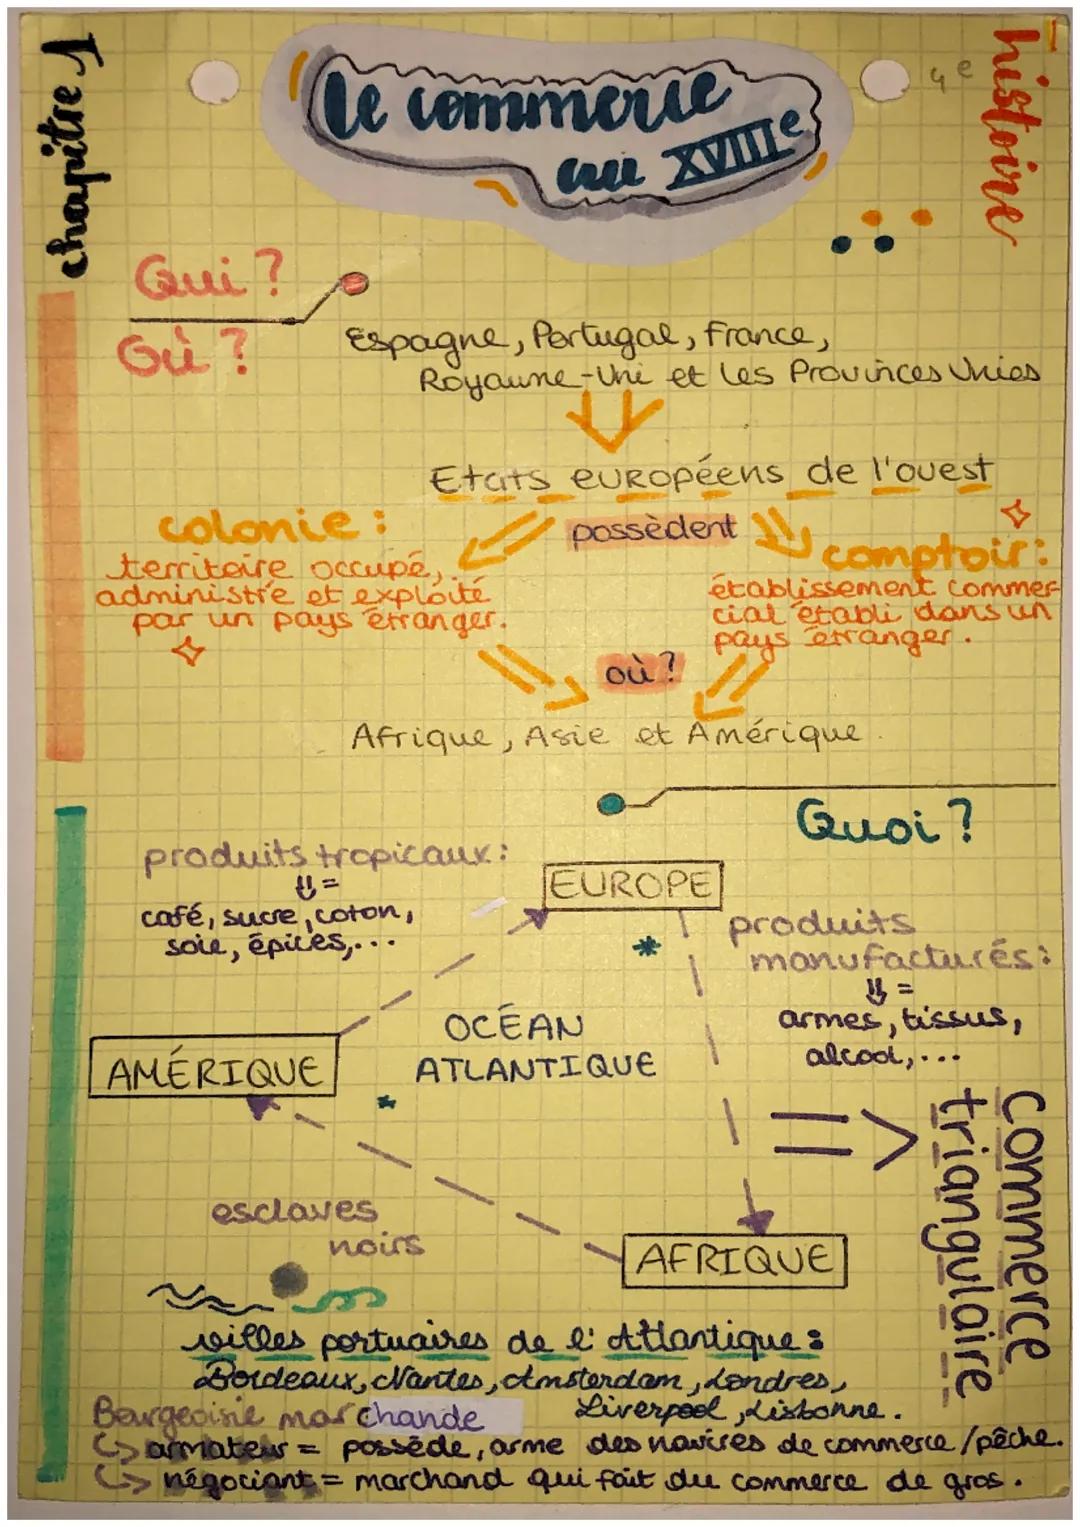 chapitre 1
histoire
4e
le commerce
au XVIIIe
Qui ?
Où ?
Espagne, Portugal, France,
Royaume-Uni et les Provinces Unies
Etats européens de l'ouest
possèdent
colonie :
territoire occupé,
administré et exploité
par un pays étranger.
comptoir :
établissement commer-
cial établi dans un
pays étranger.
où ?
Afrique, Asie et Amérique.
Quoi ?
produits tropicaux :
⇓ =
café, sucre, coton,
soie, épices,...
EUROPE
produits
manufacturés :
⇓ =
armes, tissus,
alcool,...
OCÉAN
ATLANTIQUE
AMÉRIQUE
=> commerce
triangulaire
esclaves
noirs
AFRIQUE
villes portuaires de l'Atlantique :
Bordeaux, Nantes, Amsterdam, Londres,
Liverpool, Lisbonne.
Bourgeoisie marchande
↳ armateur = possède, arme des navires de commerce / pêche.
↳ négociant = marchand qui fait du commerce de gros.